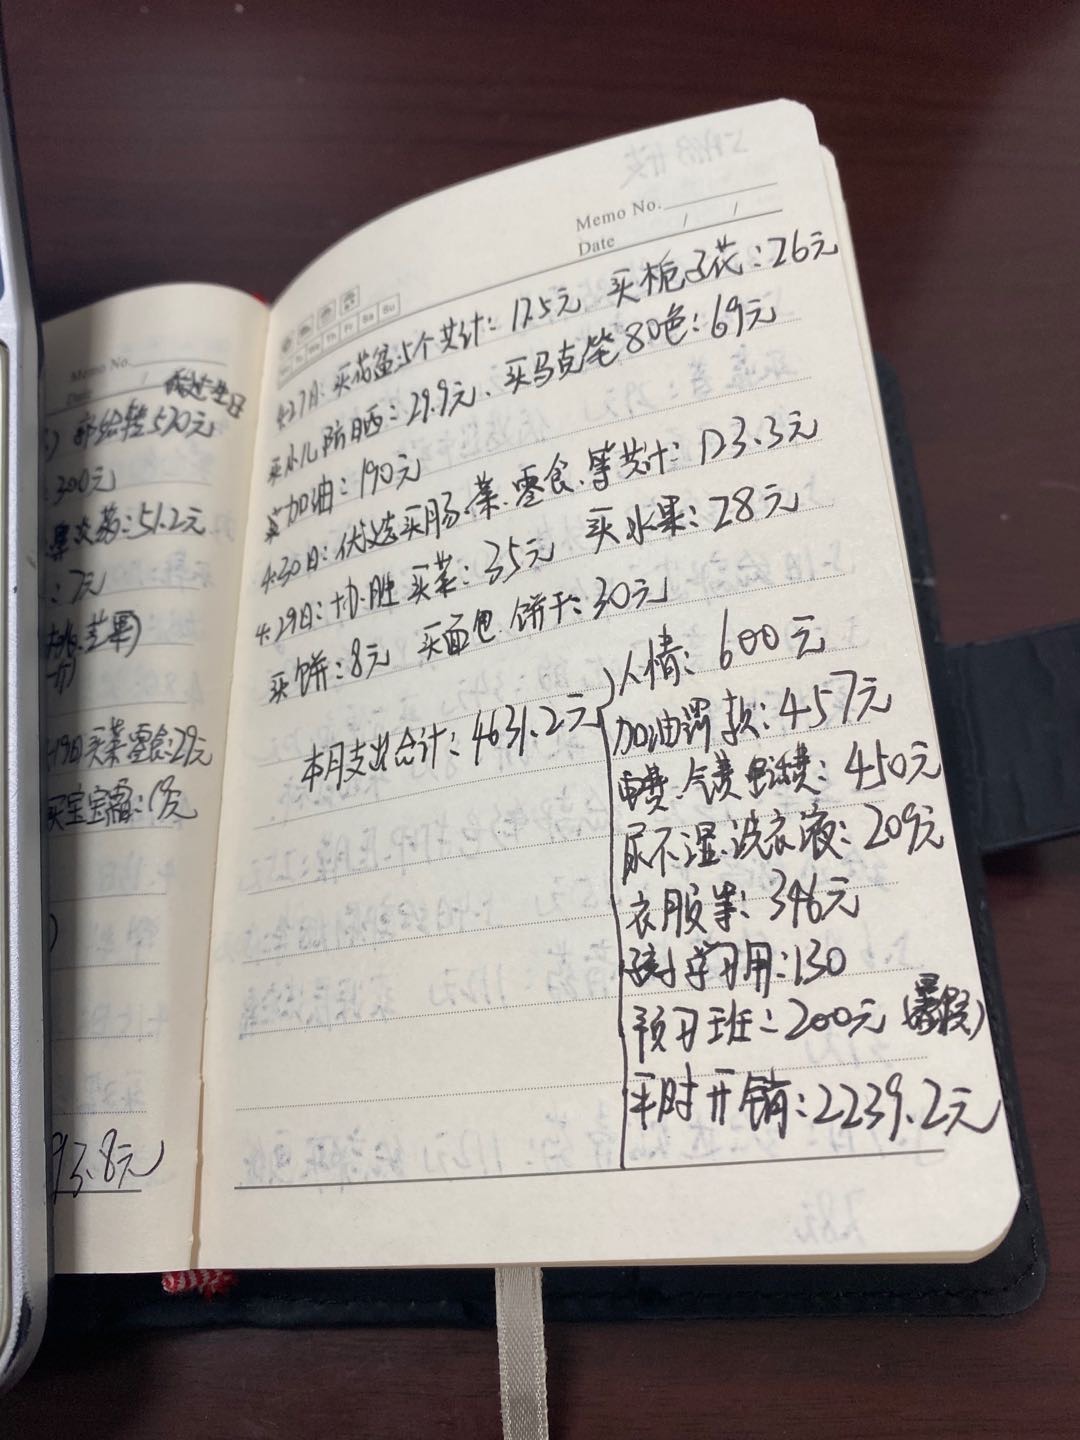 Memo No.
给转570元
300元
药:51.2元
:7元
芒果)
19日买菜零食:29元
买宝宝霜:19元
93.8元
Memo No.
Date / /
Fr Sa Su
4.27日:买花盆5个共计:12.5元 买栀子花:26元
买小儿防晒:29.9元、买马克笔80色:69元
加油:190元
4.30日:优选买肠.菜.零食.等共计:123.3元
4.29日:协胜买菜:35元 买水果:28元
买饼:8元 买面包.饼干:30元
本月支出合计:4631.2元
人情:600元
加油罚款:457元
电费.气费.电话费:450元
尿不湿.洗衣液:209元
衣服等:346元
学习用:130
预习班:200元(暑假)
平时开销:2239.2元